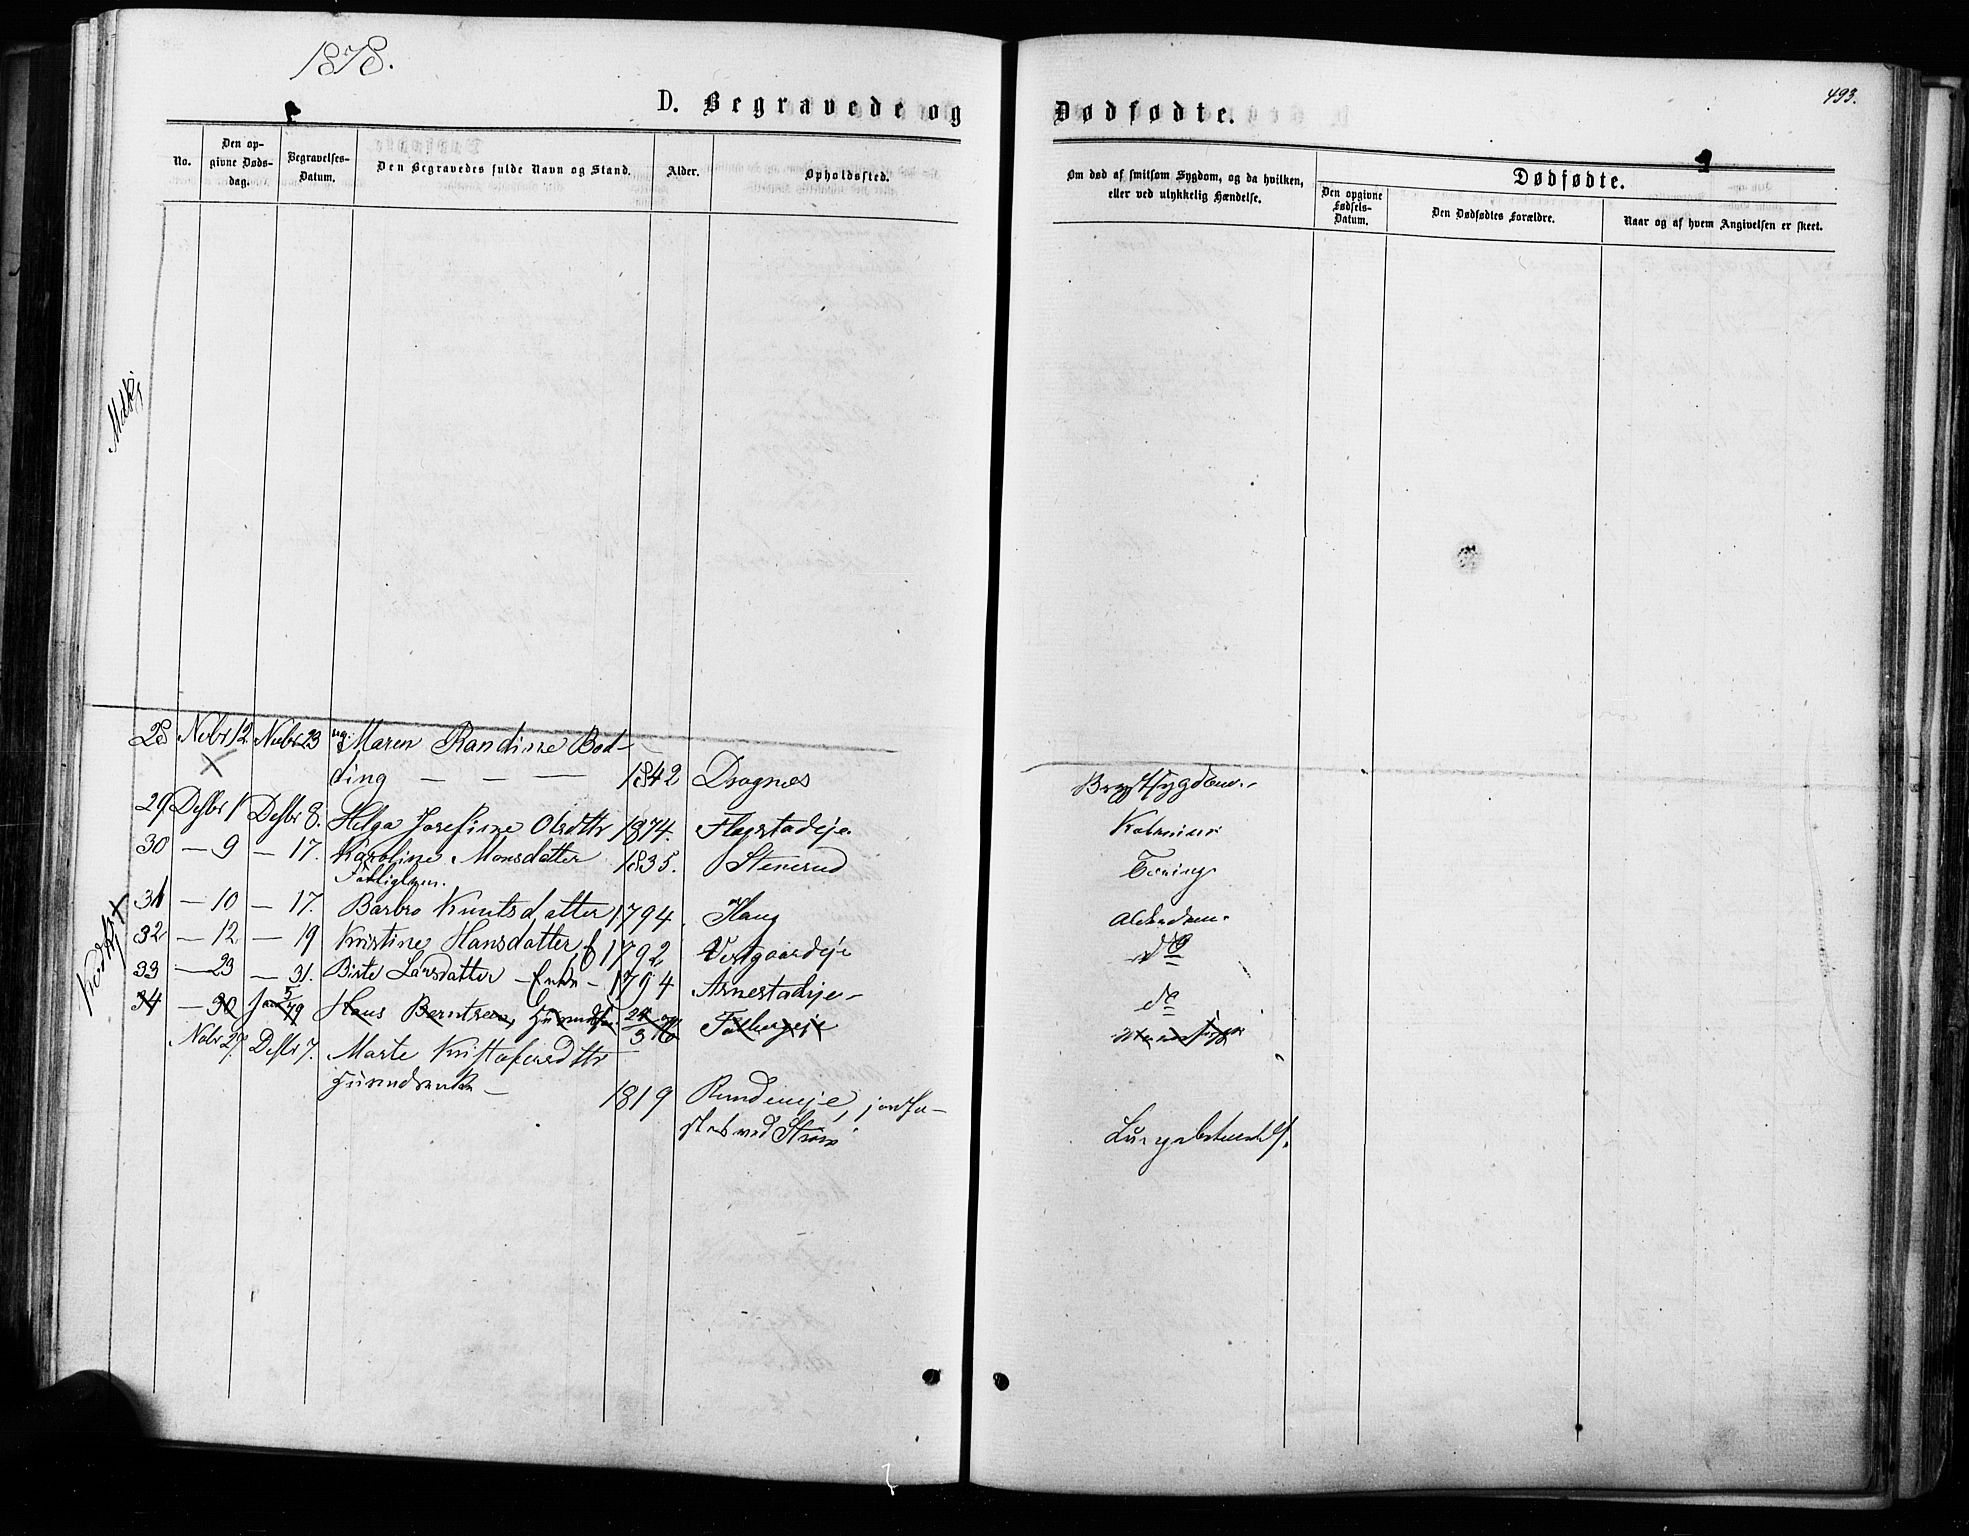 1878.
493.
D. Begravede og Dødfødte.
No.
Den opgivne Dødsdag.
Begravelses-Datum.
Den Begravedes fulde Navn og Stand.
Alder.
Opholdssted.
Om død af smitsom Sygdom, og da hvilken, eller ved ulykkelig Hændelse.
Dødfødte.
Den opgivne Fødsels-Datum.
Den Dødfødtes Forældre.
Naar og af hvem Angivelsen er skeet.
28 Nvbr 12 Nvbr 23 ug. Maren Randine Bod-
ding — — — 1842 Dragnes Brystsygdom.
29 Desbr 1 Desbr 8. Helga Josefine Olsdttr 1874. Flagstadeje
30 — 9 — 17. Karoline Monsdatter 1835. Stenerud Tæring
31 — 10 — 17. Barbro Knutsdatter 1794 Haug Alderdom.
32 — 12 — 19 Kristine Hansdatter 1792 Vestgaardeje do
33 — 23 — 31. Birte Larsdatter Enke 1794 Arnestadeje do
34 — 30 Jan 5/79 Hans Berntsen,
Nvbr 27. Desbr 7. Marte Kristofersdttr
1819 Rundeneje, jordfæ-
stet ved Strøm